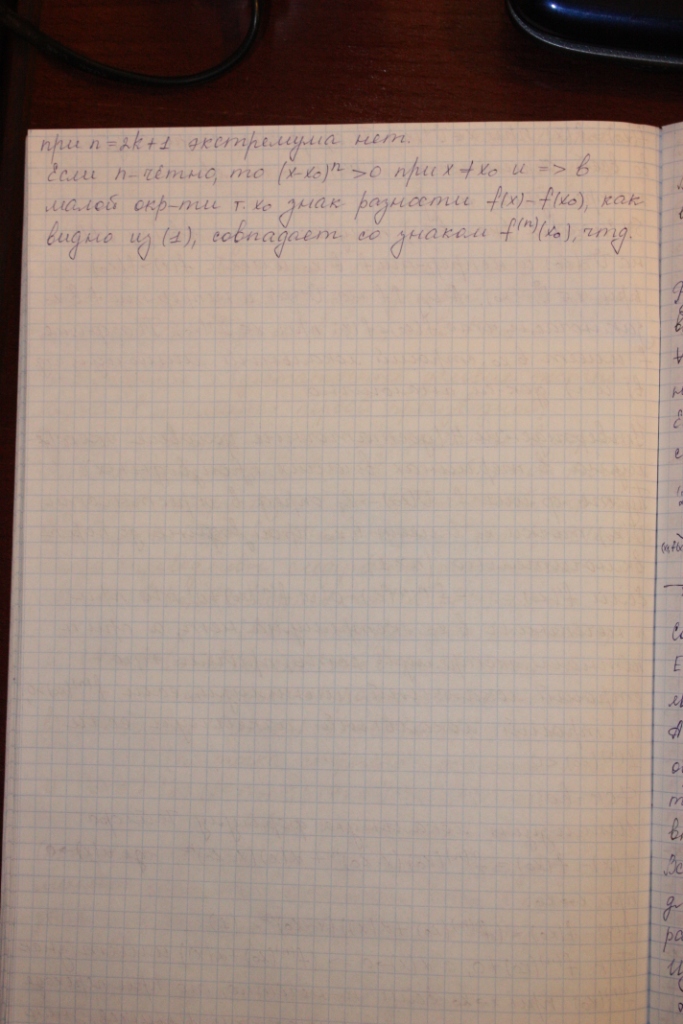 при n=2k+1 экстремума нет.
Если n-чётно, то (x-x₀)ⁿ >0 при x≠x₀ и => в
малой окр-ти т. x₀ знак разности f(x)-f(x₀), как
видно из (1), совпадает со знаком f⁽ⁿ⁾(x₀), чтд.